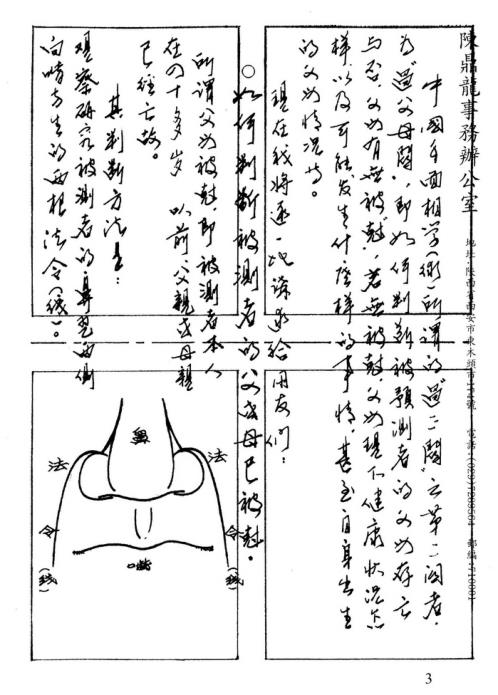 陳鼎龍事務辦公室
地址:陝西省西安市東木頭市
電話:(029)
郵編:710001
中國手面相学(術)所謂的“過三關”之第二関者,
為“過父母関”,即如何判斷被預測者的父母存亡
与否,父母有無被尅,若無被尅,父母現下健康狀況怎
樣,以及可能发生什麼樣的事情,甚至自身出生
的父母情況等。
現在我將逐一地講求給朋友们:
○如何判斷被測者的父或母已被尅。
所謂父母被尅,即被測者本人
在四十多岁以前,父親或母親
已經亡故。
其判斷方法是:
觀察研究被測者的鼻翼两側
向嘴方生的两根法令(线)。
鼻
法
令
(线)
法
令
(线)
嘴
3